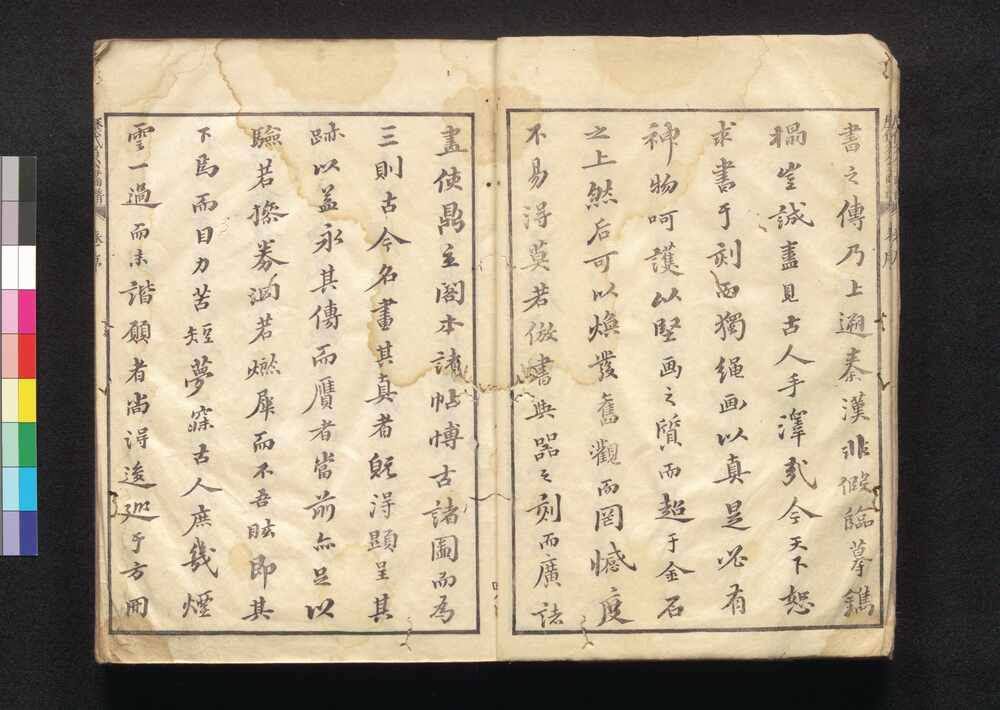 書之傳乃上遡秦漢非假臨摹鐫
搨豈誠盡見古人手澤哉今天下恕
求書于刻而獨繩画以真是必有
神物呵護以堅画之質而超于金石
之上然后可以煥發舊觀而罔憾度
不易得莫若倣書與器之刻而廣誌
畫使鼎立閣本諸帖博古諸圖而為
三則古今名畫其真者既得顯呈其
跡以益永其傳而贋者當前亦足以
驗若擦券涸若燃犀而不吾眩即其
下焉而目力苦短夢寐古人庶幾煙
雲一過而未諧願者尚得逡廵于方冊